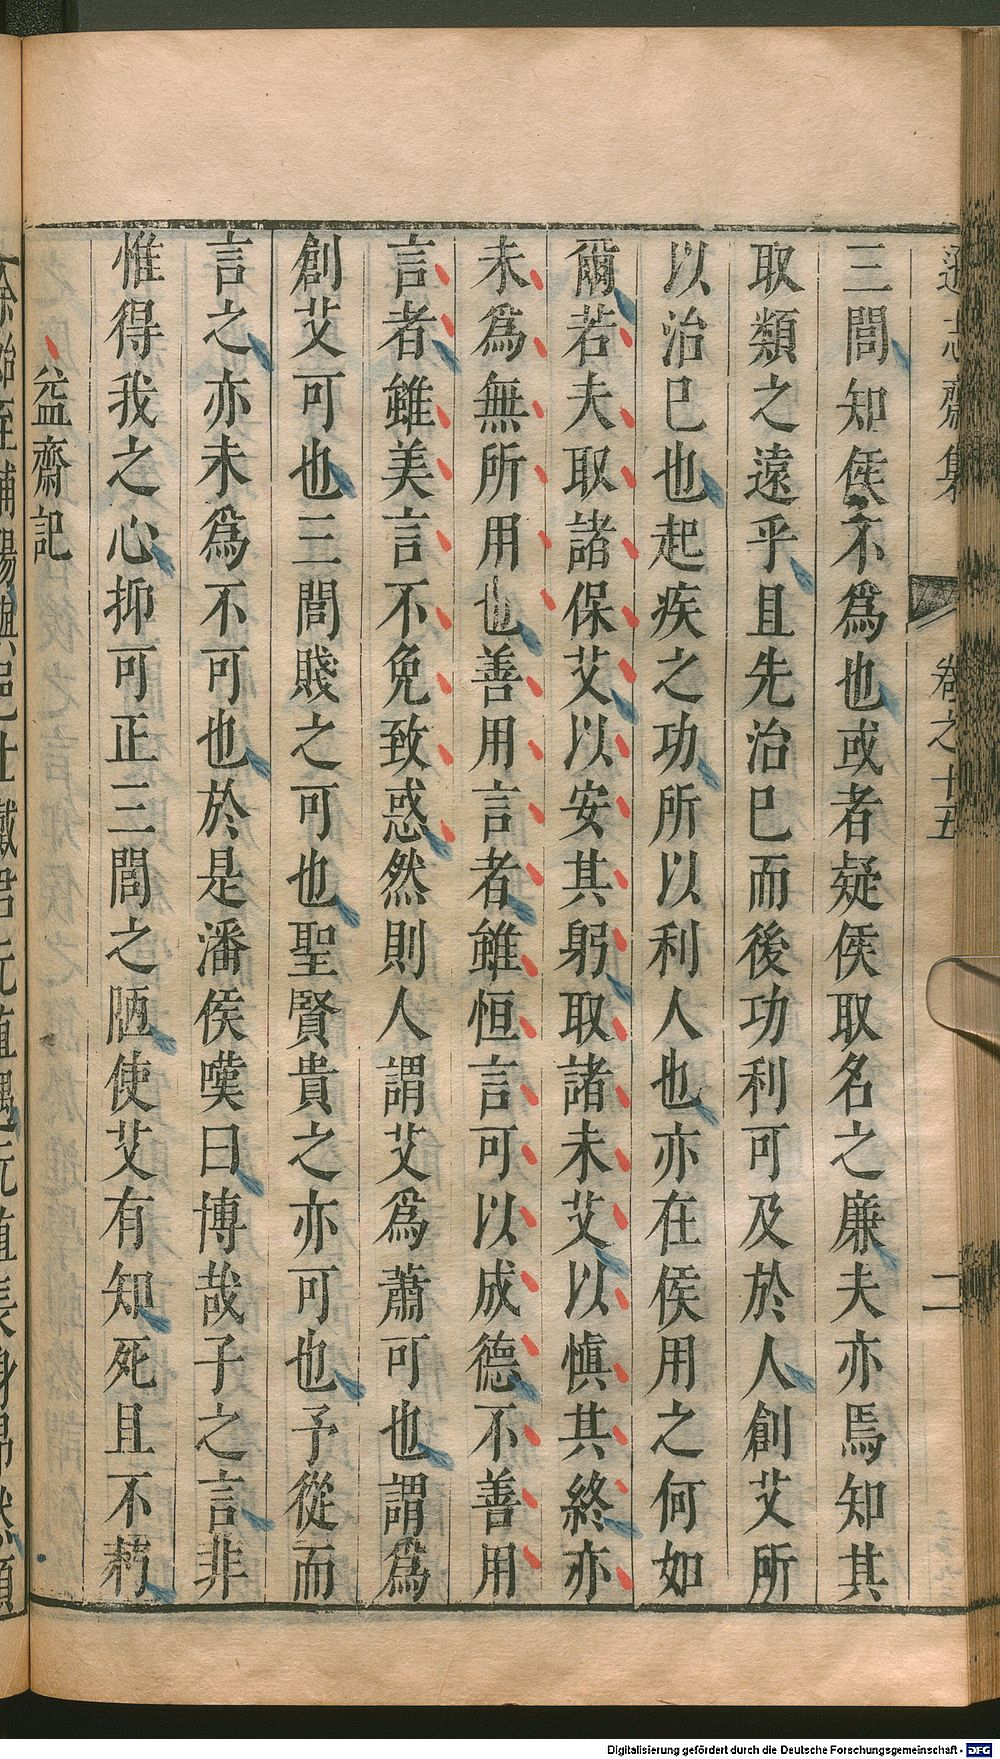 遜志齋集 卷之十五 二
三閭知侯不爲也或者疑侯取名之廉夫亦焉知其
取類之遠乎且先治已而後功利可及於人創艾所
以治已也起疾之功所以利人也亦在侯用之何如
爾若夫取諸保艾以安其躬取諸未艾以愼其終亦
未爲無所用也善用言者雖恒言可以成德不善用
言者雖美言不免致惑然則人謂艾爲蕭可也謂爲
創艾可也三閭賤之可也聖賢貴之亦可也予從而
言之亦未爲不可也於是潘侯嘆曰博哉子之言非
惟得我之心抑可正三閭之陋使艾有知死且不朽
益齋記
Digitalisierung gefördert durch die Deutsche Forschungsgemeinschaft - DFG